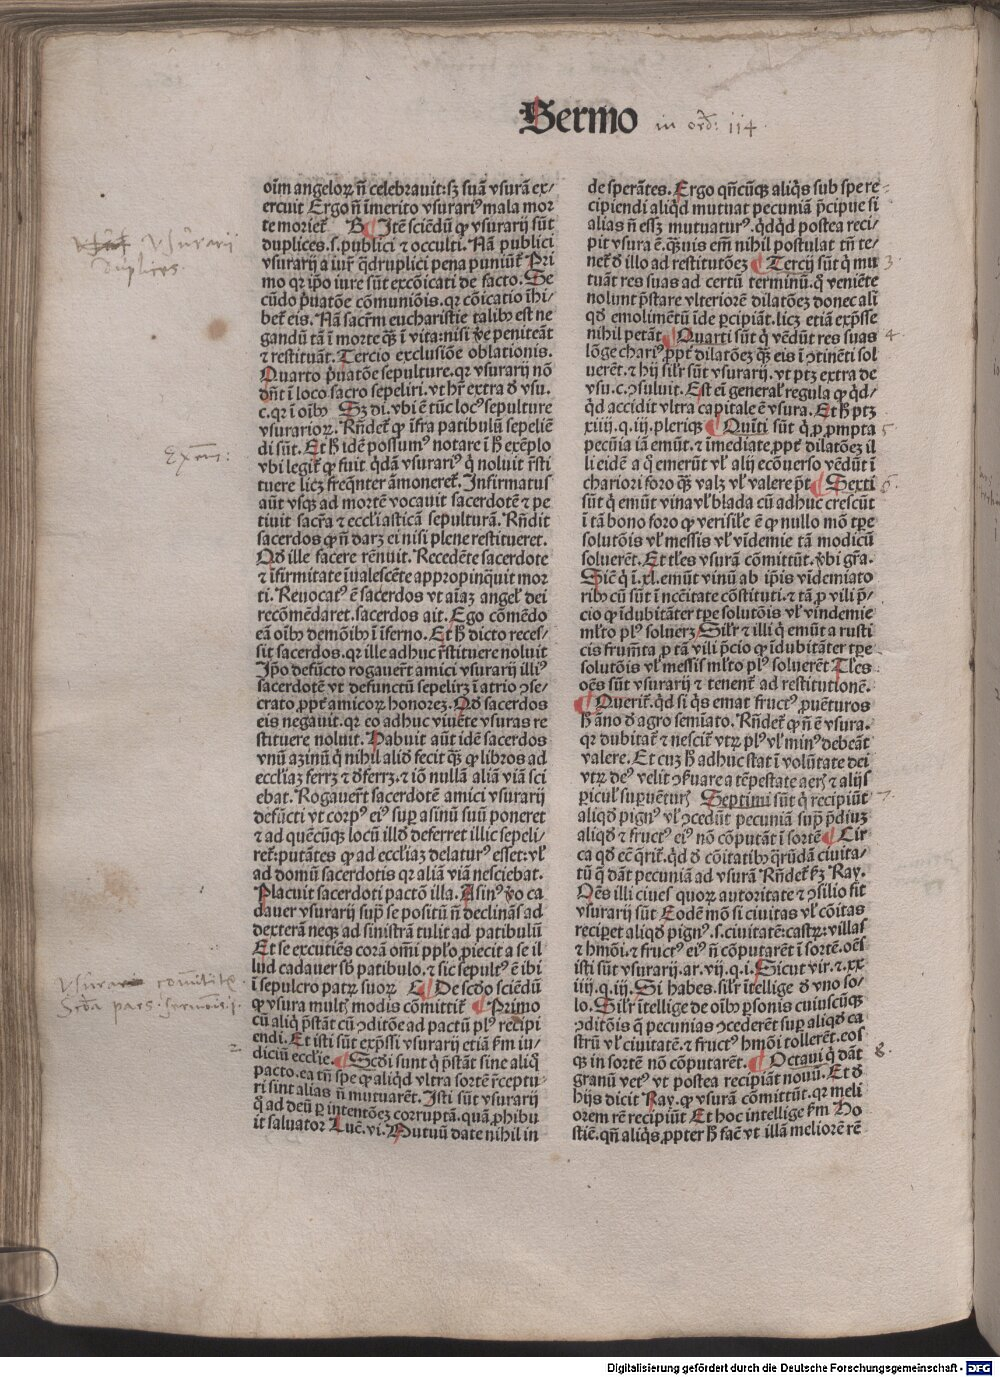 Sermo in ord: 114
oīm angeloꝝ n̄ celebrauit: sꝫ suā vsurā ex/
ercuit Ergo n̄ īmerito vsurariꝰ mala mor
te morieť B Itē sciēdū ꝙ vsurarij sūt
duplices. s. publici ⁊ occulti. Nā publici
vsurarij a iur̄ q̄druplici pena puniūť Pri
mo qꝛ ip̄o iure sūt excōicati de facto. Se
cūdo p̄uatōe cōmuniōis. qꝛ cōicatio īhi/
beť eis. Nā sacr̄m eucharistie talibꝰ est ne
gandū tā ī morte qꝫ̄ ī vita: nisi ve peniteāt
⁊ restituāt. Tercio exclusiōe oblationis.
Quarto p̄uatōe sepulture. qꝛ vsurarij nō
dn̄t ī loco sacro sepeliri. vt hr̄ extra ď vsu.
c. qꝛ ī oībꝰ Sꝫ di. vbi ē tūc locꝰ sepulture
vsurarioꝝ. Rn̄deť ꝙ īfra patibulū sepeliē
di sūt. Et ħ idē possumꝰ notare ī ħ exēplo
vbi legiť ꝙ fuit q̄dā vsurariꝰ q̇ noluit r̄sti
tuere licꝫ freq̄nter āmonereť. Infirmatus
aūt vsqꝫ ad mortē vocauit sacerdotē ⁊ pe
tiuit sacr̄a ⁊ eccl̄iasticā sepulturā. Rn̄dit
sacerdos ꝙ n̄ darꝫ ei nisi plene restitueret.
Qď ille facere rēnuit. Recedēte sacerdote
⁊ īfirmitate īualescēte appropinq̄uit mor
ti. Reuocatꝰ ē sacerdos vt aīaꝫ angeľ dei
recōmēdaret. sacerdos ait. Ego cōmēdo
eā oībꝰ demōibꝰ ī īferno. Et ħ dicto reces/
sit sacerdos. qꝛ ille adhuc r̄stituere noluit
Ip̄o defūcto rogauer̄t amici vsurarij illiꝰ
sacerdotē vt defunctū sepelirꝫ ī atrio ↄse/
crato ꝓpť amicoꝝ honorez. Qď sacerdos
eis negauit. qꝛ eo adhuc viuēte vsuras re
stituere noluit. Habuit aūt idē sacerdos
vnū aꝫinū q̇ nihil aliď fecit qꝫ̄ ꝙ libros ad
eccl̄iaꝫ ferrꝫ ⁊ ďferrꝫ. ⁊ iō nullā aliā viā sci
ebat. Rogauer̄t sacerdotē amici vsurarij
defūcti vt corpꝰ eiꝰ suꝑ asinū suū poneret
⁊ ad quēcūqꝫ locū illď deferret illic sepeli/
reť: putātes ꝙ ad eccl̄iaꝫ delaturꝰ esset: vľ
ad domū sacerdotis qꝛ aliā viā nesciebat.
Placuit sacerdoti pactō illa. Asinꝰ ꝟo ca
dauer vsurarij supꝰ se positū n̄ declinās ad
dexterā neqꝫ ad sinistrā tulit ad patibulū
Et se excutiēs corā omī pplō ꝓiecit a se il
lud cadauer sb̄ patibulo. ⁊ sic sepultꝰ ē ibi
ī sepulcro patꝝ suoꝝ C De scďo sciēdū
ꝙ vsura multꝭ modis cōmittiť Primo
cū aliq̇ p̄stāt cū ↄditōe ad pactū plꝰ recipi
endi. Et isti sūt exp̄ssi vsurarij etiā km̄ iu/
diciū eccl̄ie. Scďi sunt q̇ p̄stāt sine aliq̊
pacto. ea tn̄ spe ꝙ aliqď vltra sortē r̄ceptu/
ri sint alias n̄ mutuarēt. Isti sūt vsurarij
q̊ ad deū ꝑ intentōeꝫ corruptā. quā ꝓhibu
it saluator Luē. vi. Mutuū date nihil in
de sperātes. Ergo qn̄cūqꝫ aliq̇s sub spe re-
cipiendi aliqď mutuat pecuniā p̄cipue si
alias n̄ essꝫ mutuaturꝰ. q̇dqď postea reci/
pit vsura ē. q̄uis em̄ nihil postulat tn̄ te/
neť ď illo ad restitutōeꝫ Tercij sūt q̇ mu 3.
tuāt res suas ad certū terminū. q̊ veniēte
nolunt p̄stare vlteriorē dilatōeꝫ donec ali
qď emolimētū īde ꝑcipiāt. licꝫ etiā exp̄sse
nihil petāt Quarti sūt q̇ vēdūt res suas 4.
lōge chariꝰ ꝓpť dilatōeꝫ qꝫ̄ eis ī ↄtinēti sol
uerēt. ⁊ hij sil̄r sūt vsurarij. vt ptꝫ extra de
vsu. c. ↄsuluit. Est ei generaľ regula ꝙ q̇d/
q̇d accidit vltra capitale ē vsura. Et ħ ptꝫ
xiiij. q. iij. plericqꝫ Quīti sūt q̇ ꝓ ꝓmpta 5
pecūia iā emūt. ⁊ īmediate ꝓpť dilatōeꝫ il
li eidē a q̊ emerūt vľ alij ecōuerso vēdūt ī
chariori foro qꝫ̄ valꝫ vľ valere pn̄t Sexti 6.
sūt q̇ emūt vina vľ blada cū adhuc crescūt
ī tā bono foro ꝙ verisiľe ē ꝙ nullo mō tꝑe
solutōis vľ messis vľ vīdemie tā modicū
soluerēt. Et tľes vsurā cōmittūt. vbi gr̄a.
Siē q̇ ī. xl. emūt vinū ab ip̄is vīdemiato
ribꝰ cū sūt ī nc̄citate cōstituti. ⁊ tā ꝓ vili p̄/
cio ꝙ īdubitāter tꝑe solutōis vľ vindemie
mľto plꝰ soluerꝫ Sil̄r ⁊ illi q̇ emūt a rusti
cis frumēta ꝓ tā vili p̄cio ꝙ īdubitāter tꝑe
solutōis vľ messis mľto plꝰ soluerēt Tľes
oēs sūt vsurarij ⁊ tenenť ad restitutionē.
Queriť. qď si q̇s emat fructꝰ ꝓuēturos
ħ āno ď agro semīato. Rn̄deť ꝙ n̄ ē vsura.
qꝛ dubitať ⁊ nesciť vtꝝ plꝰ vľ minꝰ debeāt
valere. Et cuꝫ ħ adhuc stat ī volūtate dei
vtꝝ deꝰ velit ↄſuare a tēpestate aerꝭ ⁊ alijs
ꝑiculꝭ suꝑuētur̄ Septimi sūt q̇ recipiūt 7.
aliqď pignꝰ vľ ↄcedūt pecuniā suꝑ p̄diuꝫ
aliqď ⁊ fructꝰ eiꝰ nō cōputāt ī sortē Cir
ca qď ec̄ q̄riť. qď ď cōitatibꝰ q̄rūdā ciuita/
tū q̇ dāt pecuniā ad vsurā Rn̄deť km̄ Ray.
Oēs illi ciues quoꝝ autoritate ⁊ ↄsilio fit
vsurarij sūt Eodē mō si ciuitas vľ cōitas
recipet aliqď pignꝰ. s. ciuitatē: castꝝ: villas
⁊ hmōi. ⁊ fructꝰ eiꝰ n̄ cōputarēt ī sortē. oēs
isti sūt vsurarij. ar. vij. q. i. Sicut vir. ⁊ xx
iiij. q. iij. Si habes. sil̄r ītellige ď vno so/
lo. Sil̄r ītellige de oībꝰ ꝑsonis cuiuscūqꝫ
ↄditōis q̇ pecunias ↄcederēt suꝑ aliqď ca
strū vľ ciuitatē. ⁊ fructꝰ hmōi tollerēt. eos
qꝫ in sortē nō cōputarēt. Octaui q̇ dāt 8.
granū vetꝰ vt postea recipiāt nouū. Et ď
hijs dicit Ray. ꝙ vsurā cōmittūt. qꝛ meli
orem rē recipiūt Et hoc intellige km̄ Ho
stiē. qn̄ aliq̇s ꝓpter ħ facē vt illā meliorē rē
vsurarij
duplices.
Exem:
Scďa pars sermōis
2.
Digitalisierung gefördert durch die Deutsche Forschungsgemeinschaft - DFG